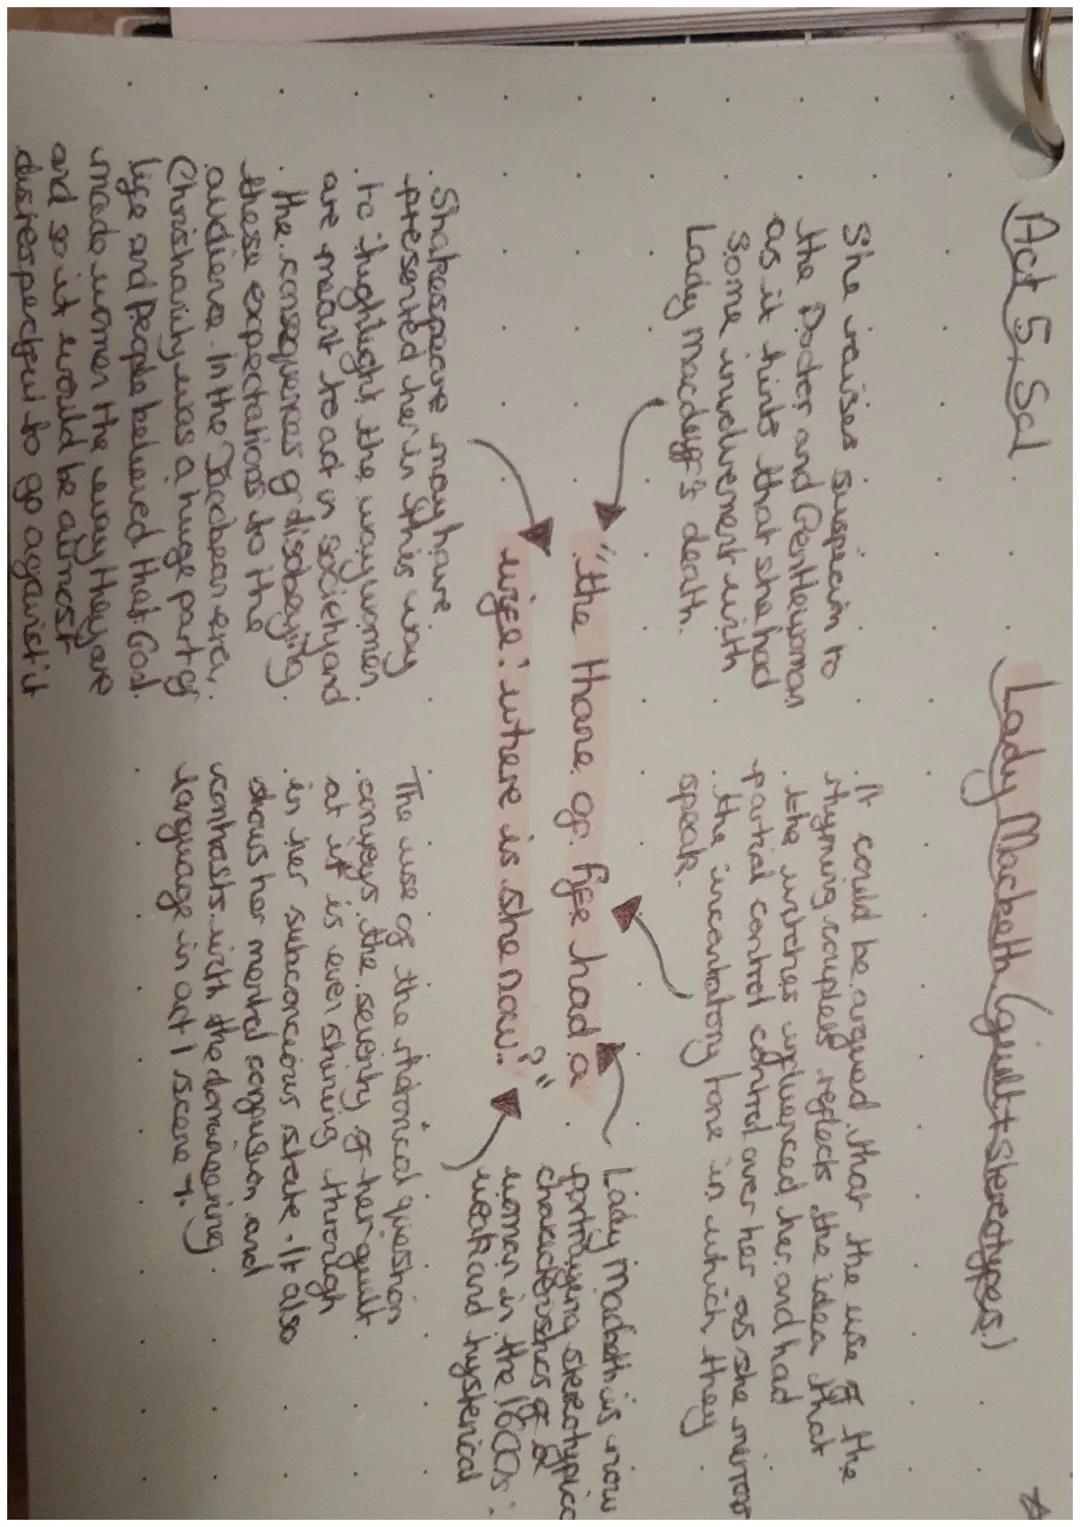 Act 5, Sc1
Lady Macbeth (guilt + stereotypes)
She raises suspicion to
the Doctor and Gentlewoman
as it hints that she had
some involvement with
Lady Macduff's death.
It could be argued that the use of the
rhyming couplets reflects the idea that
the witches influenced her and had
partial control control over her as she mirrors
the incantatory tone in which they
speak.
"the thane of fife had a
wife: where is she now..?"
Lady macbeth is now
portraying stereotypical
characteristics of a
woman in the 1600s:
weak and hysterical
Shakespeare may have
presented her in this way
to highlight the way women
are meant to act in society and
the consequences of disobeying
these expectations to the
audience. In the Jacobean era,
Christianity was a huge part of
life and people believed that God
made women the way they are
and so it would be almost
disrespectful to go against it
The use of the rhetorical question
conveys the severity of her guilt
at it is even shining through
in her subconcious state. It also
shows her mental confusion and
contrasts with the domineering
language in act 1 scene 7.